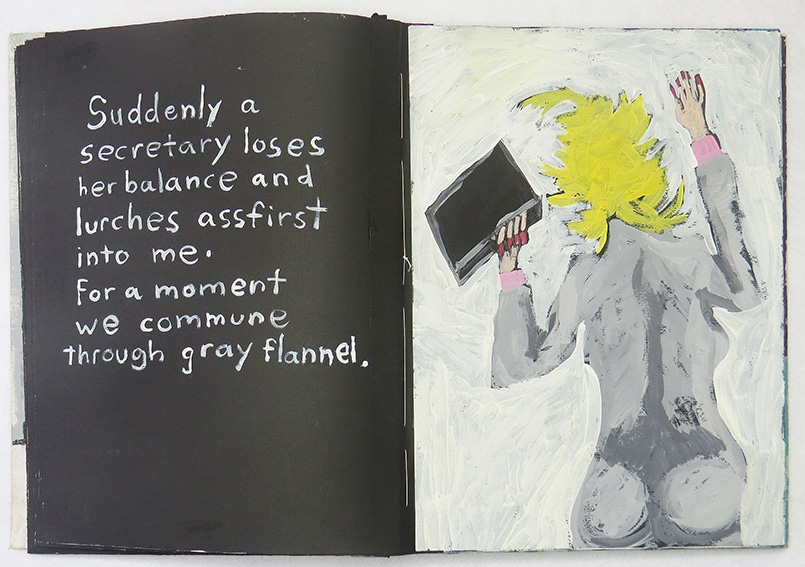 Suddenly a
secretary loses
her balance and
lurches assfirst
into me.
For a moment
we commune
through gray flannel.